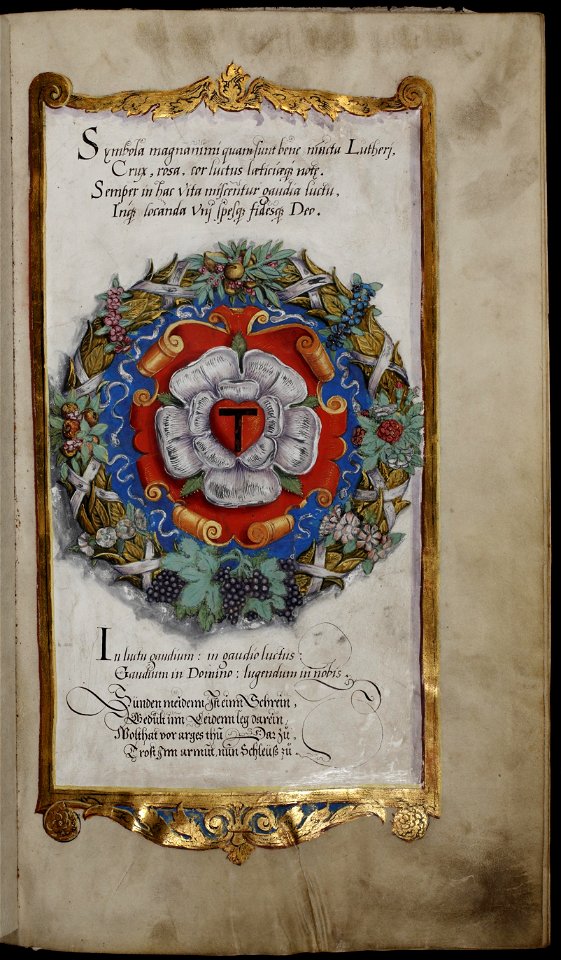 Symbola magnanimi quam sunt bene nincta Lutheri,
Crux, rosa, cor luctus læticiæq; notę.
Semper in hac vita miscentur gaudia luctu,
Inq; locanda vni spesq; fidesq; Deo.
T
In luctu gaudium: in gaudio luctus:
Gaudium in Domino: lugendum in nobis.
Sunden meidenn Ist einn Schrein,
Gedult inn Leidenn leg darein,
Wolthat vor arges thu Dar zů,
Trost Inn armut, nun Schleüß zů.